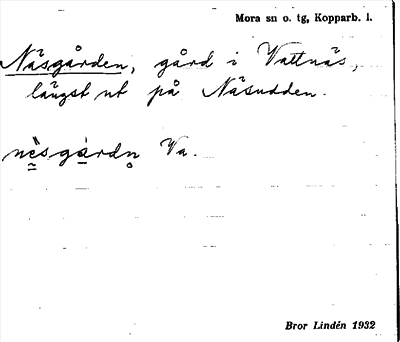 Mora sn o. tg, Kopparb. l.
Näsgården, gård i Vattnäs,
längst ut på Näsudden.
nèsgàrdn Va.
Bror Lindén 1932